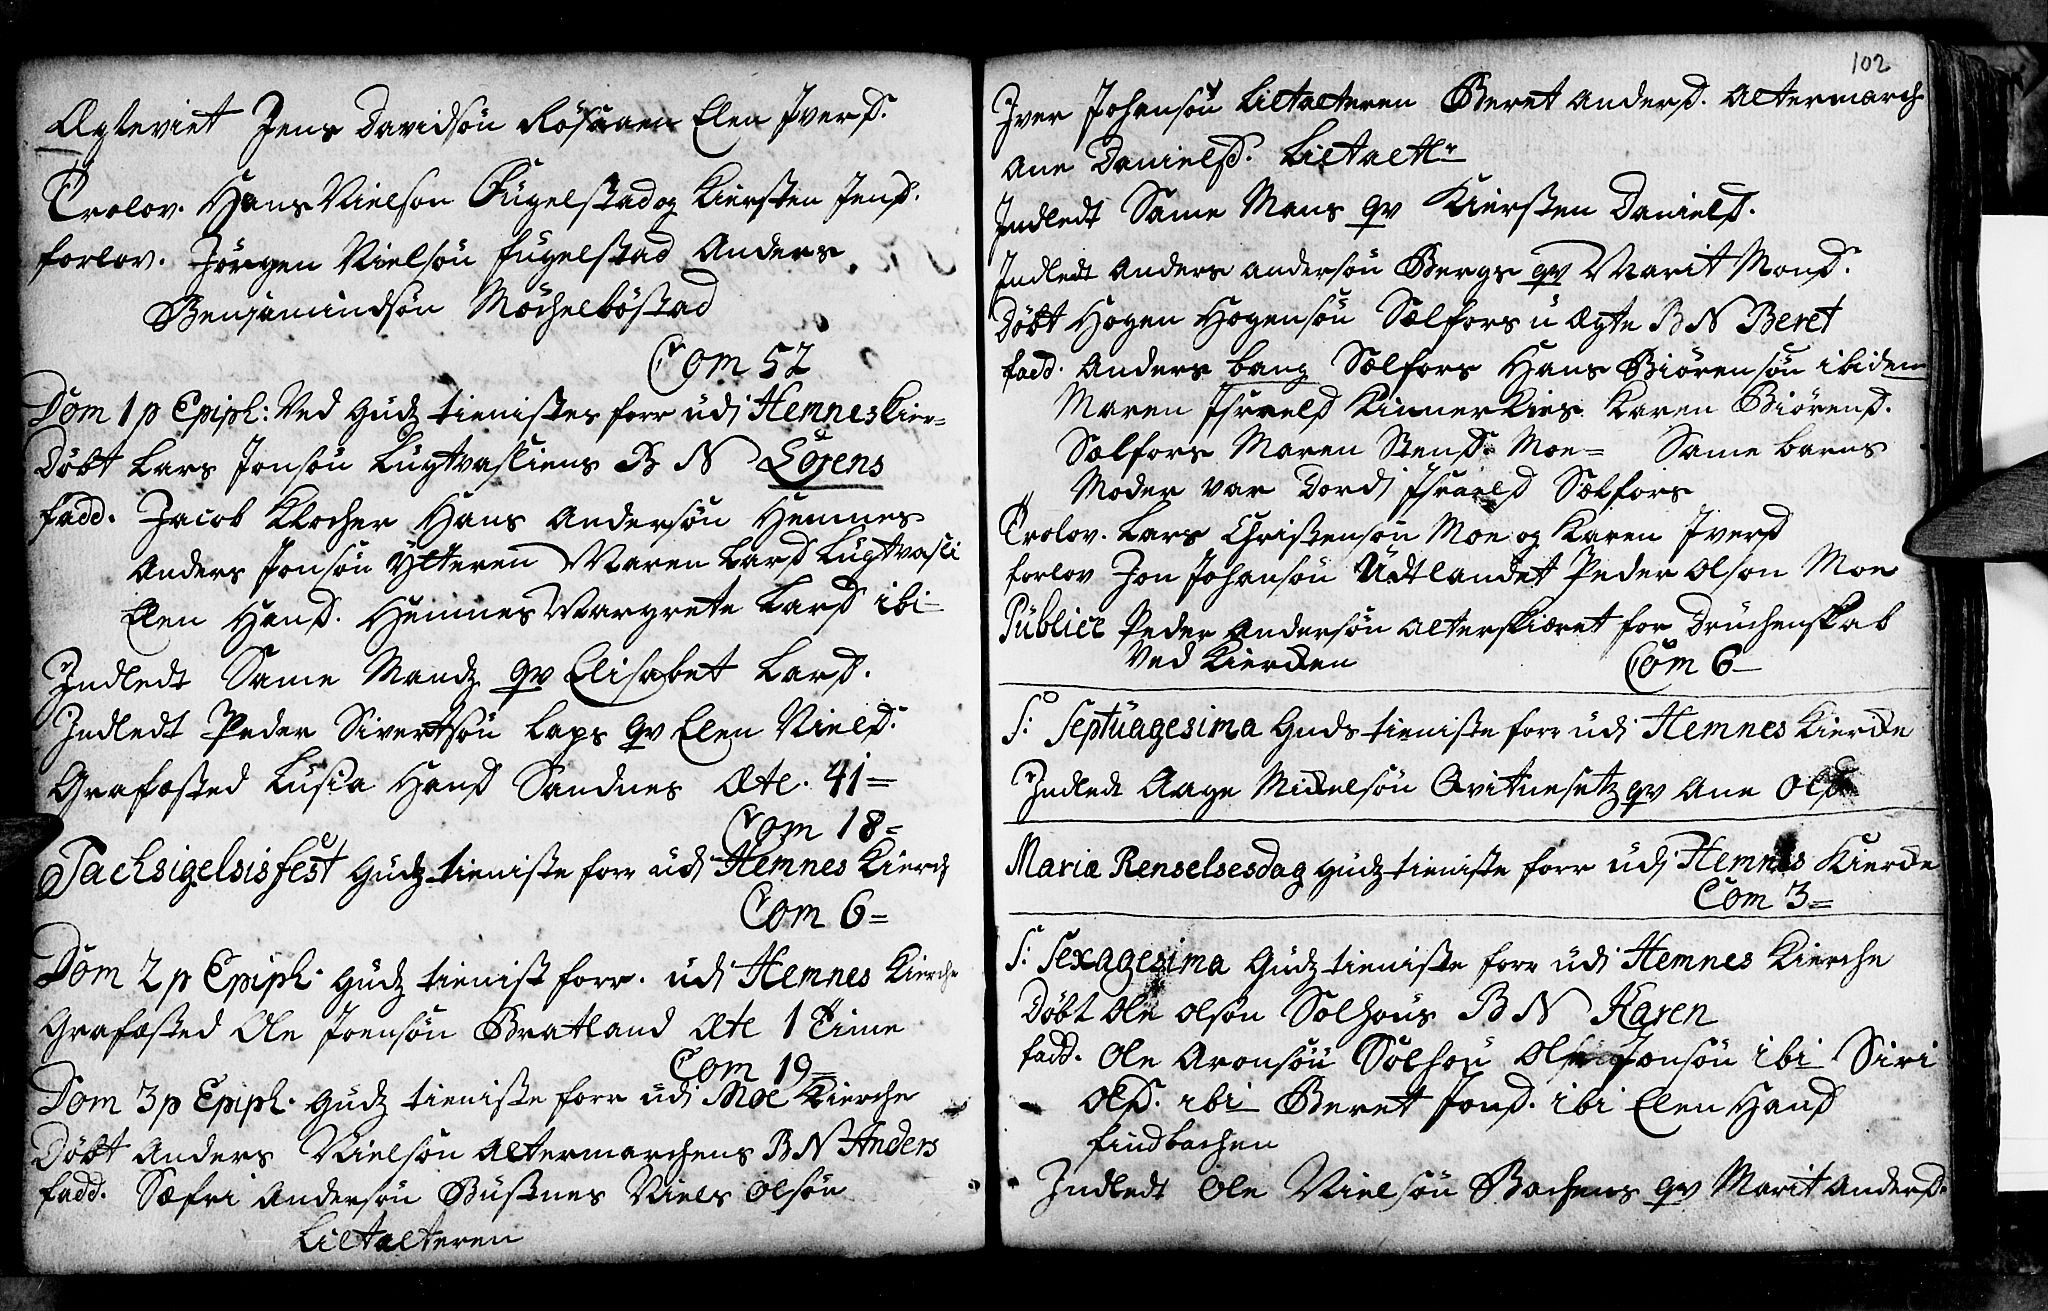 Ægteviet Jens Davidsøn Røsaaen Elen Iversd.
Trolov. Hans Nielson Fugelstad og Kiersten Jensd.
forlov. Jørgen Nielsøn Fugelstad Anders
Benjamindsøn Møchelbøstad
Com 52
Dom 1 p Epiph: Ved Gudz tienistes forr udj Hemnes Kier=
Døbt Lars Jonsøn Lugtvasliens B N Lorens
fadd. Jacob Klocher Hans Andersøn Hemnes
Anders Jonsøn Ytteren Maren Larsd Lugtvasli
Elen Hansd. Hemnes Margrete Larsd ibi
Indledt Same Mandz qv Elisabet Larsd.
Indledt Peder Sivertsøn Laps qv Elen Nielsd.
Grafæsted Lusia Hansd Sandnes Æte. 41=
Com 18=
Tachsigelsisfest Gudz tieniste forr udj Hemnes Kierch
Com 6=
Dom 2 p Epiph. Gudz tienist forr. udj Hemnes Kierche
Grafæsted Ole Joensøn Bratland Æte 1 Time
Com 19=
Dom 3 p Epiph. Gudz tieniste forr udj Moe Kierche
Døbt Anders Nielsøn Altermarchens B N Anders
fadd. Sæfri Andersøn Bustnes Niels Olsøn
Liltalteren
102
Iver Johansøn Liltalteren Beret Andersd. Altermarch
Ane Danielsd. Liltaltr
Indledt Same Mans qv Kiersten Danielsd.
Indledt Anders Andersøn Bergs qv Marit Monsd.
Døbt Hogen Hogensøn Sælfors u Ægte B N Beret
fadd. Anders Bang Sælfors Hans Biørensøn ibidem
Maren Israelsd Kinnerkies Karen Biørensd.
Sælfors Maren Stensd. Moe= Same barns
Moder var Dordj Israelsd Sælfors
Trolov. Lars Christensøn Moe og Karen Iversd
forlov Jon Johansøn Udtlandet Peder Olson Moe
Publicc Peder Andersøn Alterskiæret for Druchenskab
Ved Kierchen Com 6
S: Septuagesima Guds tieniste forr udj Hemnes Kierche
Indledt Aage Michelsøn Qvitnesetz qv Ane Olsd.
Mariæ Renselsesdag Gudz tieniste forr udj Hemnes Kierche
Com 3=
S: Sexagesima Gudz tieniste forr udj Hemnes Kierche
Døbt Ole Olson Solhous B N Karen
fadd. Ole Aronsøn Solhou Ole Jonsøn ibi Siri
Olsd. ibi Beret Jonsd. ibi Elen Hansd
Findbachen
Indledt Ole Nielsøn Bachens qv Marit Andersd.